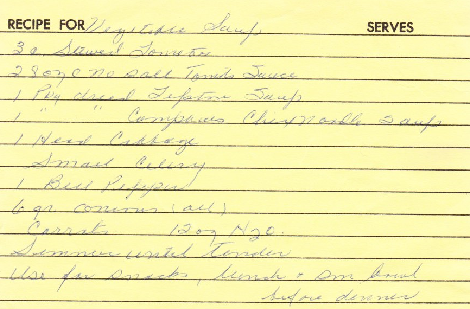 RECIPE FOR Vegetable Soup SERVES
3 c. Stewed Tomatoe
2 8oz c no salt Tomato Sauce
1 Pkg dried Lipton Soup
1 " " Chix Noodle Soup
1 Head Cabbage
Small Celery
1 Bell Pepper
6 gr. onions (all)
Carrots 12 oz H2O.
Simmer until Tender
Use for snacks, lunch + sm bowl
before dinner